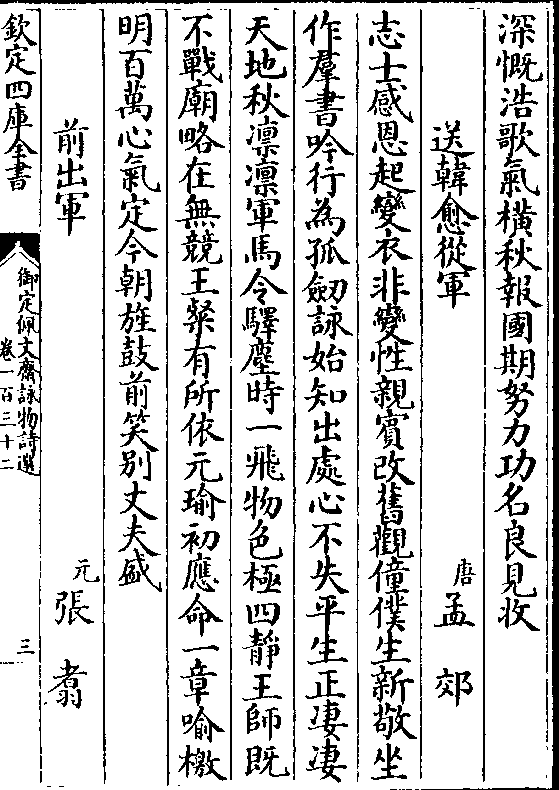 深慨浩歌氣橫秋報國期努力功名良見收
送韓愈從軍
唐孟郊
志士感恩起變衣非變性親賓改舊觀僮僕生新敬坐
作羣書吟行為孤劒詠始知出處心不失平生正凄凄
天地秋凛凛軍馬令驛塵時一飛物色極四靜王師既
不戰廟略在無競王粲有所依元瑜初應命一章喻檄
明百萬心氣定今朝旌鼓前笑別丈夫盛
前出軍
元張翥
欽定四庫全書
御定佩文齋詠物詩選
卷一百三十二
三